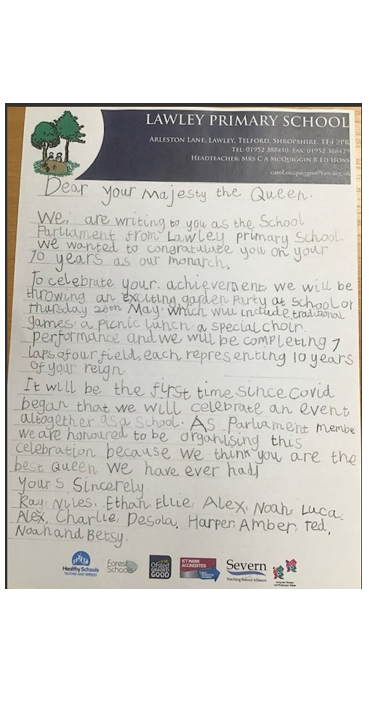 LAWLEY PRIMARY SCHOOL
ARLESTON LANE, LAWLEY, TELFORD, SHROPSHIRE, TF4 2PR
HEADTEACHER: MRS C A MCQUIGGIN B ED HONS
Dear your Majesty the Queen.
We, are writing to you as the School
Parliament from Lawley primary School.
We wanted to congratulate you on your
70 years as our monarch.
To celebrate your achievement we will be
throwing an exciting garden Party at School on
Thursday 26th May. which will include traditional
games. a Picnic lunch. a special choir
performance and we will be completing 7
laps of our field, each representing 10 years
of your reign
It will be the first time since Covid
began that we will celebrate an event
altogether as a School. As Parliament membe
we are honoured to be organising this
celebration because we think you are the
best Queen we have ever had!
Yours Sincerely
Ray, Niles, Ethan, Ellie, Alex, Noah, Luca,
Alex, Charlie, Desola, Harper, Amber, Ted,
Noah and Betsy.
Healthy Schools
Forest
Schools
Ofsted
GOOD
ICT MARK
ACCREDITED
Severn
Teaching School Alliance